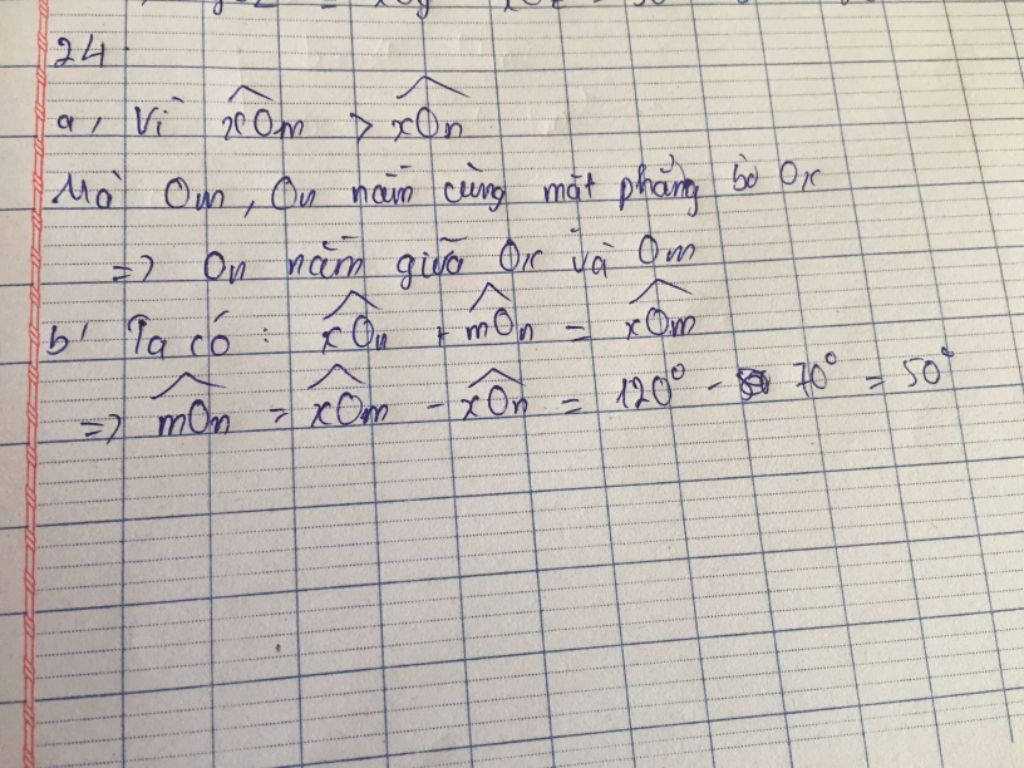 24
a, Vì \widehat{xOm} > \widehat{xOn}
Mà Om, On nằm cùng mặt phẳng bờ Ox
=> On nằm giữa Ox và Om
b, Ta có : \widehat{xOn} + \widehat{mOn} = \widehat{xOm}
=> \widehat{mOn} = \widehat{xOm} - \widehat{xOn} = 120° - 70° = 50°